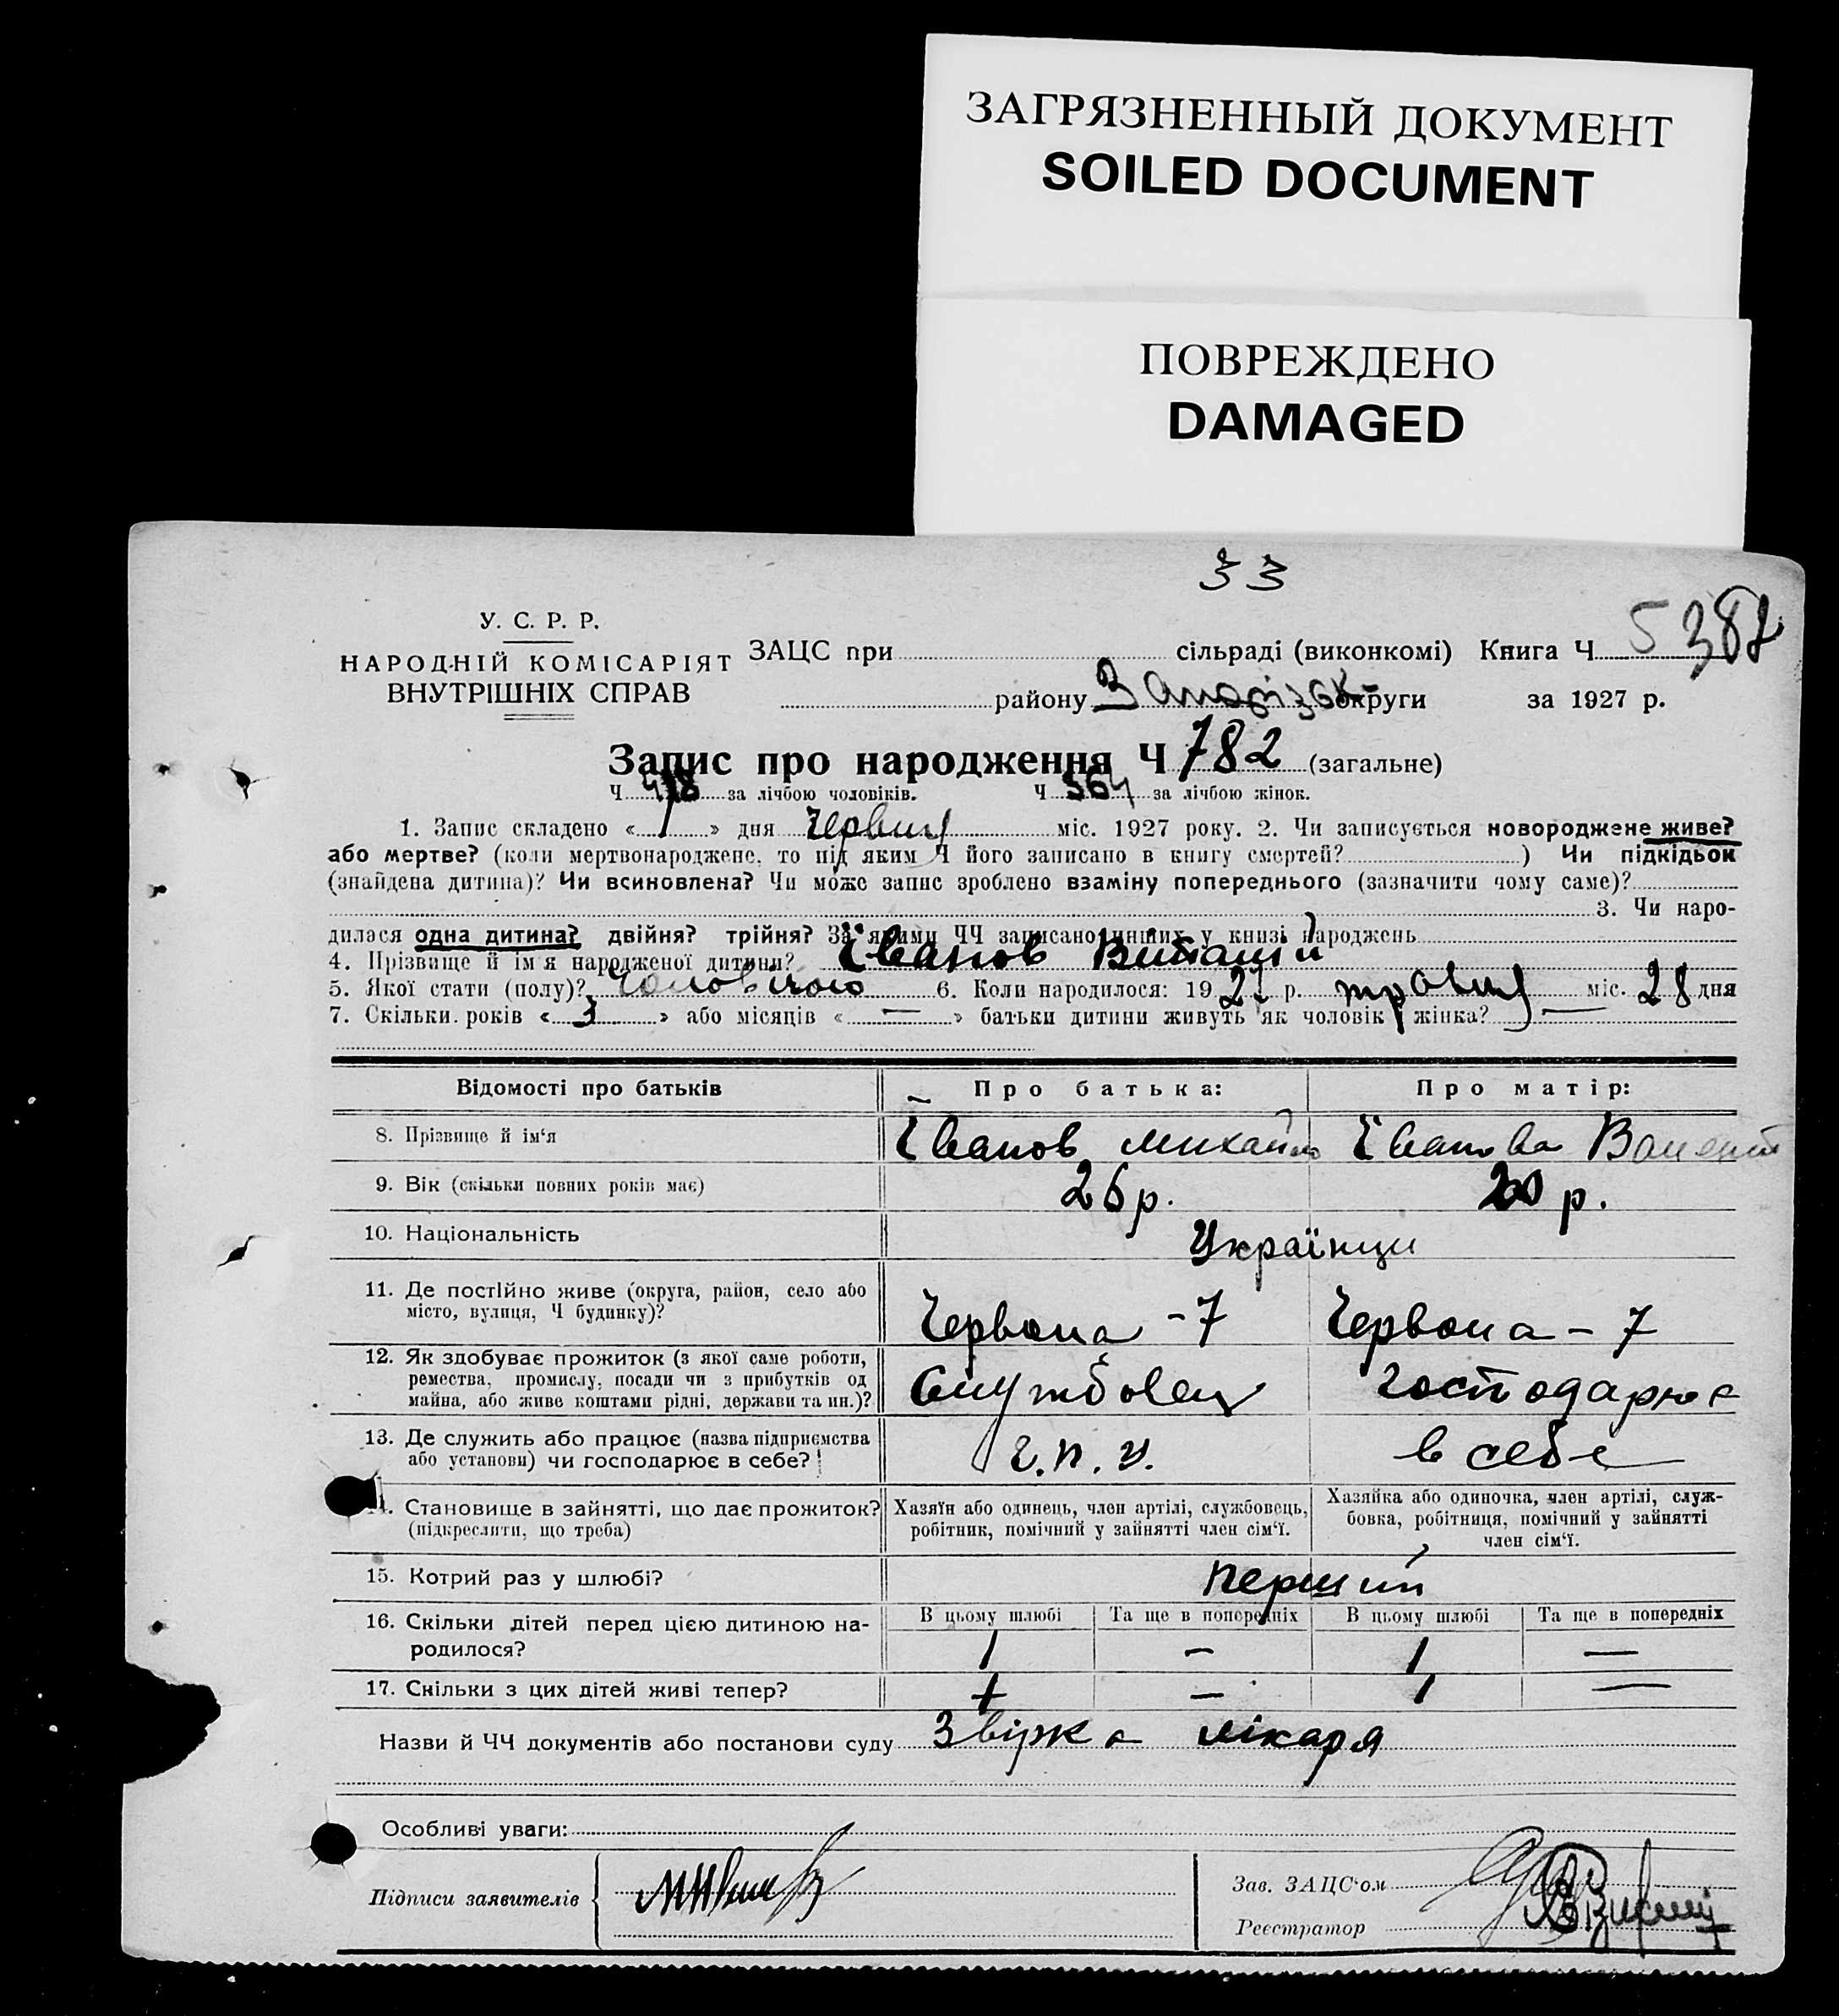 ЗАГРЯЗНЕННЫЙ ДОКУМЕНТ
SOILED DOCUMENT
ПОВРЕЖДЕНО
DAMAGED
33
У. С. Р. Р.
НАРОДНІЙ КОМІСАРІЯТ
ВНУТРІШНІХ СПРАВ
ЗАЦС при сільраді (виконкомі) Книга Ч 5 382
району Запоріз округи за 1927 р.
Запис про народження Ч 782 (загальне)
Ч 418 за лічбою чоловіків. Ч 364 за лічбою жінок.
1. Запис складено « 1 » дня Червня міс. 1927 року. 2. Чи записується новороджене живе?
або мертве? (коли мертвонароджене, то під яким Ч його записано в книгу смертей? ) Чи підкідьок
(знайдена дитина)? Чи всиновлена? Чи може запис зроблено взаміну попереднього (зазначити чому саме)?
3. Чи наро-
дилася одна дитина? двійня? трійня? За якими ЧЧ записано инших у книзі народжень
4. Прізвище й ім'я народженої дитини? Іванов Віталій
5. Якої стати (полу)? чоловічою 6. Коли народилося: 1927 р. травня міс. 28 дня
7. Скільки років « 3 » або місяців « — » батьки дитини живуть як чоловік і жінка? —
Відомості про батьків Про батька: Про матір:
8. Прізвище й ім'я Іванов Михайло Іванова
9. Вік (скільки повних років має) 26 р. 20 р.
10. Національність Українци
11. Де постійно живе (округа, район, село або
місто, вулиця, Ч будинку)? Червона - 7 Червона - 7
12. Як здобуває прожиток (з якої саме роботи,
ремества, промислу, посади чи з прибутків од
майна, або живе коштами рідні, держави та ин.)? Службовец господарює
13. Де служить або працює (назва підприємства
або установи) чи господарює в себе? Г.П.У. в себе
14. Становище в зайнятті, що дає прожиток?
(підкреслити, що треба)
Хазяїн або одинець, член артілі, службовець,
робітник, помічний у зайнятті член сім'ї.
Хазяйка або одиночка, член артілі, служ-
бовка, робітниця, помічний у зайнятті
член сім'ї.
15. Котрий раз у шлюбі? перший
В цьому шлюбі Та ще в попередніх В цьому шлюбі Та ще в попередніх
16. Скільки дітей перед цією дитиною на-
родилося? 1 — 1 —
17. Скільки з цих дітей живі тепер? + — 1 —
Назви й ЧЧ документів або постанови суду Звірка лікаря
Особливі уваги:
Підписи заявителів
Зав. ЗАЦС'ом
Реєстратор